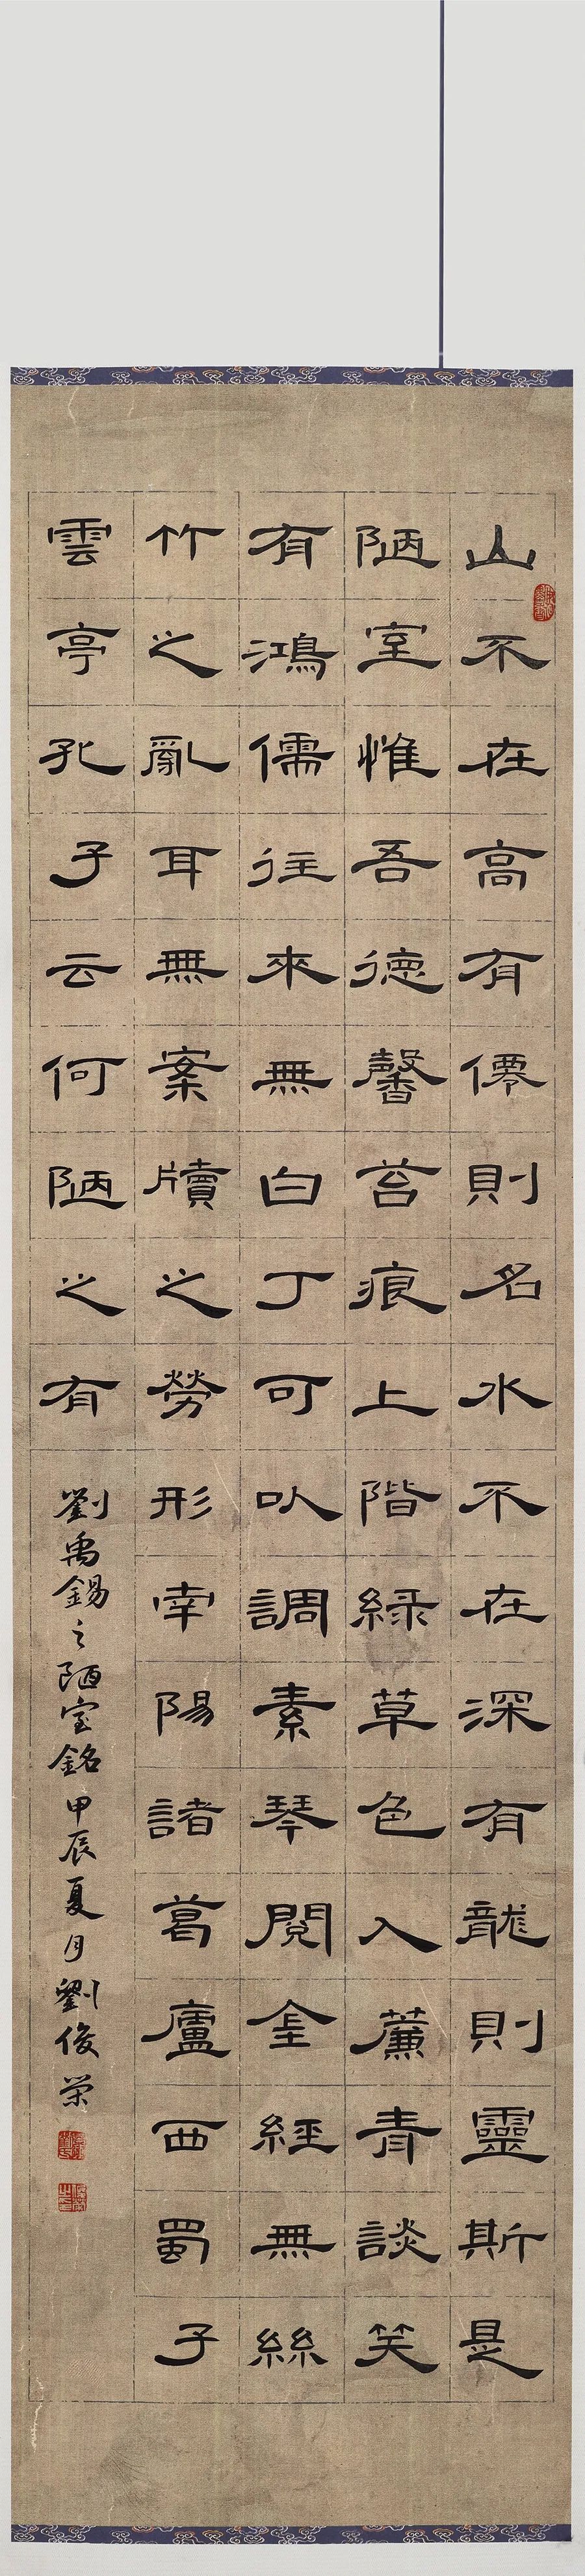 山不在高有僊則名水不在深有龍則靈斯是
陋室惟吾德馨苔痕上階緑草色入簾青談笑
有鴻儒往來無白丁可以調素琴閱金經無絲
竹之亂耳無案牘之勞形南陽諸葛廬西蜀子
雲亭孔子云何陋之有
劉禹錫之陋室銘甲辰夏月劉俊荣